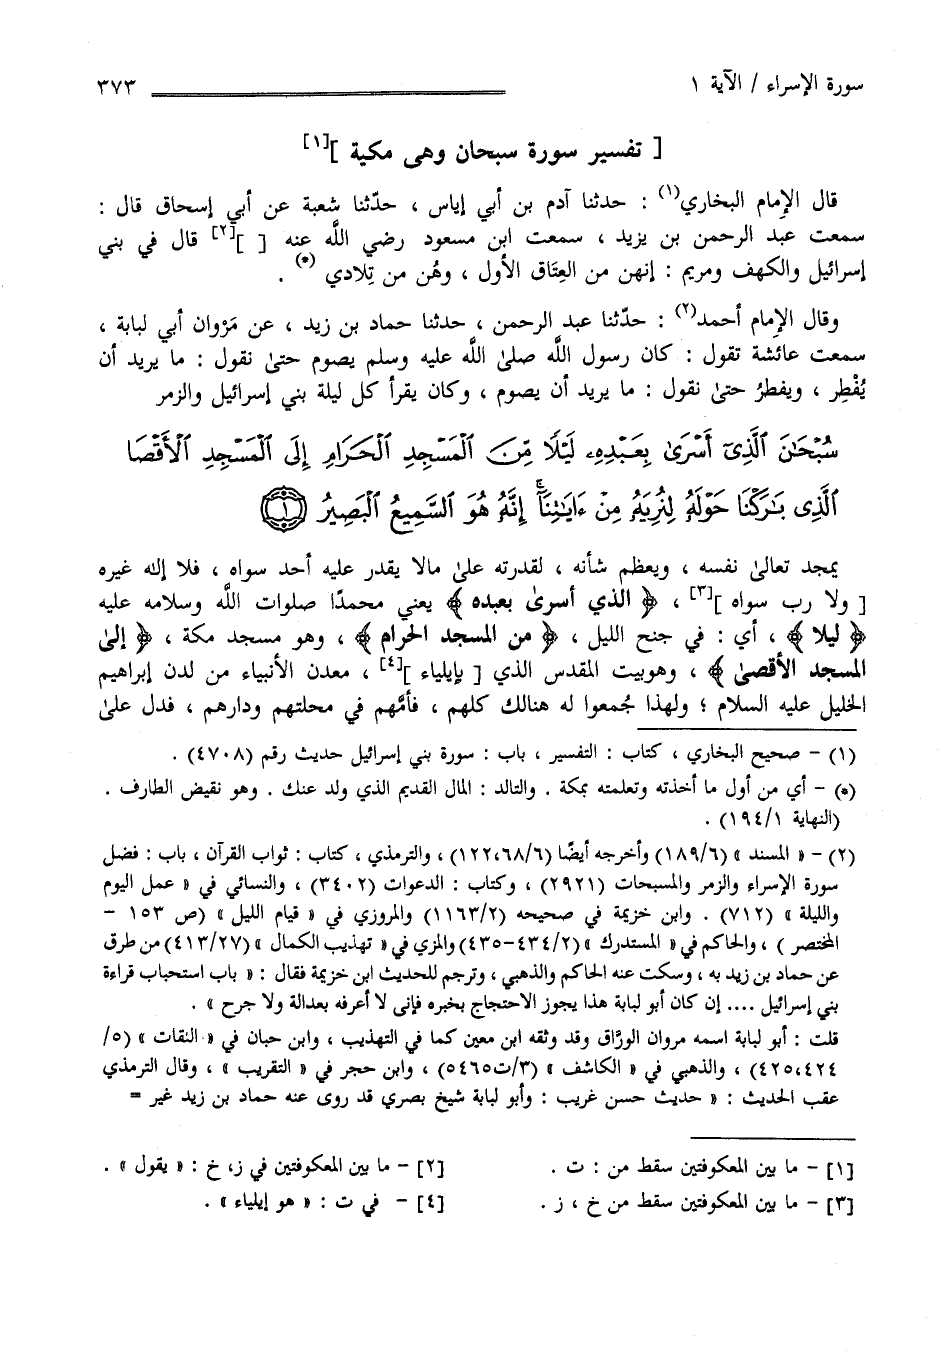 سورة الإسراء / الآية ١ ٣٧٣
[ تفسير سورة سبحان وهى مكية ][١]
قال الإمام البخاري(١) : حدثنا آدم بن أبي إياس ، حدّثنا شعبة عن أبي إسحاق قال :
سمعت عبد الرحمن بن يزيد ، سمعت ابن مسعود رضي اللَّه عنه [ ][٢] قال في بني
إسرائيل والكهف ومريم : إنهن من العِتَاق الأول ، وهُن من تِلادي (*) .
وقال الإمام أحمد(٢) : حدّثنا عبد الرحمن ، حدثنا حماد بن زيد ، عن مَرْوان أبي لبابة ،
سمعت عائشة تقول : كان رسول اللَّه صلى اللَّه عليه وسلم يصوم حتىٰ نقول : ما يريد أن
يُفْطِر ، ويفطرُ حتىٰ نقول : ما يريد أن يصوم ، وكان يقرأ كل ليلة بني إسرائيل والزمر
سُبْحَٰنَ ٱلَّذِىٓ أَسْرَىٰ بِعَبْدِهِۦ لَيْلًا مِّنَ ٱلْمَسْجِدِ ٱلْحَرَامِ إِلَى ٱلْمَسْجِدِ ٱلْأَقْصَا
ٱلَّذِى بَٰرَكْنَا حَوْلَهُۥ لِنُرِيَهُۥ مِنْ ءَايَٰتِنَآ ۚ إِنَّهُۥ هُوَ ٱلسَّمِيعُ ٱلْبَصِيرُ ١
يمجد تعالىٰ نفسه ، ويعظم شأنه ، لقدرته علىٰ مالا يقدر عليه أحد سواه ، فلا إلٰه غيره
[ ولا رب سواه ][٣] ، ﴿ الذي أسرىٰ بعبده ﴾ يعني محمدًا صلوات اللَّه وسلامه عليه
﴿ ليلا ﴾ ، أي : في جنح الليل ، ﴿ من المسجد الحرام ﴾ ، وهو مسجد مكة ، ﴿ إلىٰ
المسجد الأقصىٰ ﴾ ، وهوبيت المقدس الذي [ بإيلياء ][٤] ، معدن الأنبياء من لدن إبراهيم
الخليل عليه السلام ؛ ولهذا جُمعوا له هنالك كلهم ، فأمَّهم في محلتهم ودارهم ، فدل علىٰ
(١) – صحيح البخاري ، كتاب : التفسير ، باب : سورة بني إسرائيل حديث رقم (٤٧٠٨) .
(*) – أي من أول ما أخذته وتعلمته بمكة . والتالد : المال القديم الذي ولد عنك . وهو نقيض الطارف .
(النهاية ١/١٩٤) .
(٢) – « المسند » (٦/١٨٩) وأخرجه أيضًا (٦/١٢٢،٦٨) ، والترمذي ، كتاب : ثواب القرآن ، باب : فضل
سورة الإسراء والزمر والمسبحات (٢٩٢١) ، وكتاب : الدعوات (٣٤٠٢) ، والنسائي في « عمل اليوم
والليلة » (٧١٢) . وابن خزيمة في صحيحه (٢/١١٦٣) والمروزي في « قيام الليل » (ص ١٥٣ –
المختصر ) ، والحاكم في « المستدرك » (٢/٤٣٤–٤٣٥) والمزي في « تهذيب الكمال » (٢٧/٤١٣) من طرق
عن حماد بن زيد به ، وسكت عنه الحاكم والذهبي ، وترجم للحديث ابن خزيمة فقال : « باب استحباب قراءة
بني إسرائيل .... إن كان أبو لبابة هذا يجوز الاحتجاج بخبره فإنى لا أعرفه بعدالة ولا جرح » .
قلت : أبو لبابة اسمه مروان الورَّاق وقد وثقه ابن معين كما في التهذيب ، وابن حبان في « الثقات » (٥/
٤٢٥،٤٢٤) ، والذهبي في « الكاشف » (٣/ت٥٤٦٥) ، وابن حجر في « التقريب » ، وقال الترمذي
عقب الحديث : « حديث حسن غريب : وأبو لبابة شيخ بصري قد روى عنه حماد بن زيد غير =
[١] – ما بين المعكوفتين سقط من : ت . [٢] – ما بين المعكوفتين في ز، خ : « يقول » .
[٣] – ما بين المعكوفتين سقط من خ ، ز . [٤] – في ت : « هو إيلياء » .